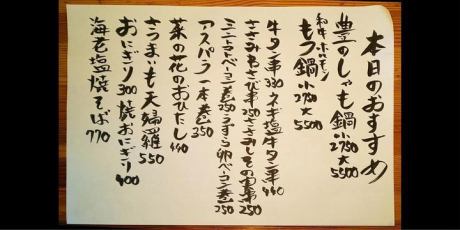 本日のおすすめ
豊のしゃも鍋 小2750 大5500
和牛ホルモン
もつ鍋 小2750 大5500
牛タン串 330 ネギ塩牛タン串 440
ささみわさび串 250 ささみしその串 250
ミニトマトベーコン巻 250 うずら卵ベーコン巻 250
アスパラ一本巻 350
菜の花のおひたし 440
さつまいも天婦羅 550
おにぎり 300 焼おにぎり 400
海老塩焼そば 770